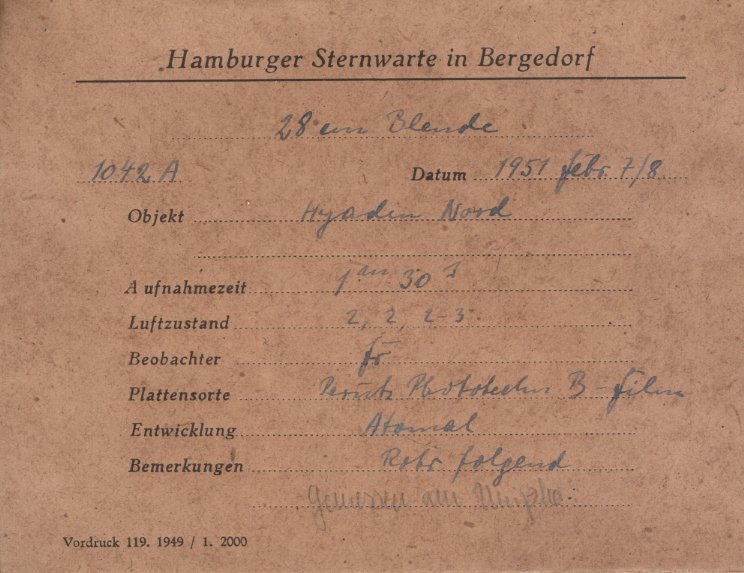 Hamburger Sternwarte in Bergedorf
28 cm Blende
1042 A Datum 1951 Febr. 7/8
Objekt Hyaden Nord
Aufnahmezeit 1 m 30 s
Luftzustand 2, 2, 2-3
Beobachter Fr
Plattensorte Perutz B-Film
Entwicklung Atomal
Bemerkungen Rohr folgend
Gemessen am
Vordruck 119. 1949 / 1. 2000